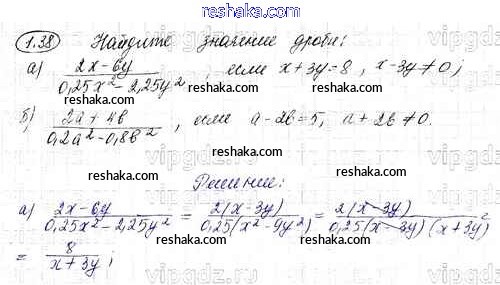 reshak.ru
1.38 Найдите значение дроби:
а) \frac{2x-6y}{0,25x^2-2,25y^2}, если x+3y=8, x-3y≠0;
reshaka.com
б) \frac{2a+4b}{0,2a^2-0,8b^2}, если a-2b=5, a+2b≠0.
reshaka.com
Решение:
reshaka.com
а) \frac{2x-6y}{0,25x^2-2,25y^2} = \frac{2(x-3y)}{0,25(x^2-9y^2)} = \frac{2(x-3y)}{0,25(x-3y)(x+3y)}
= \frac{8}{x+3y};
reshak.ru